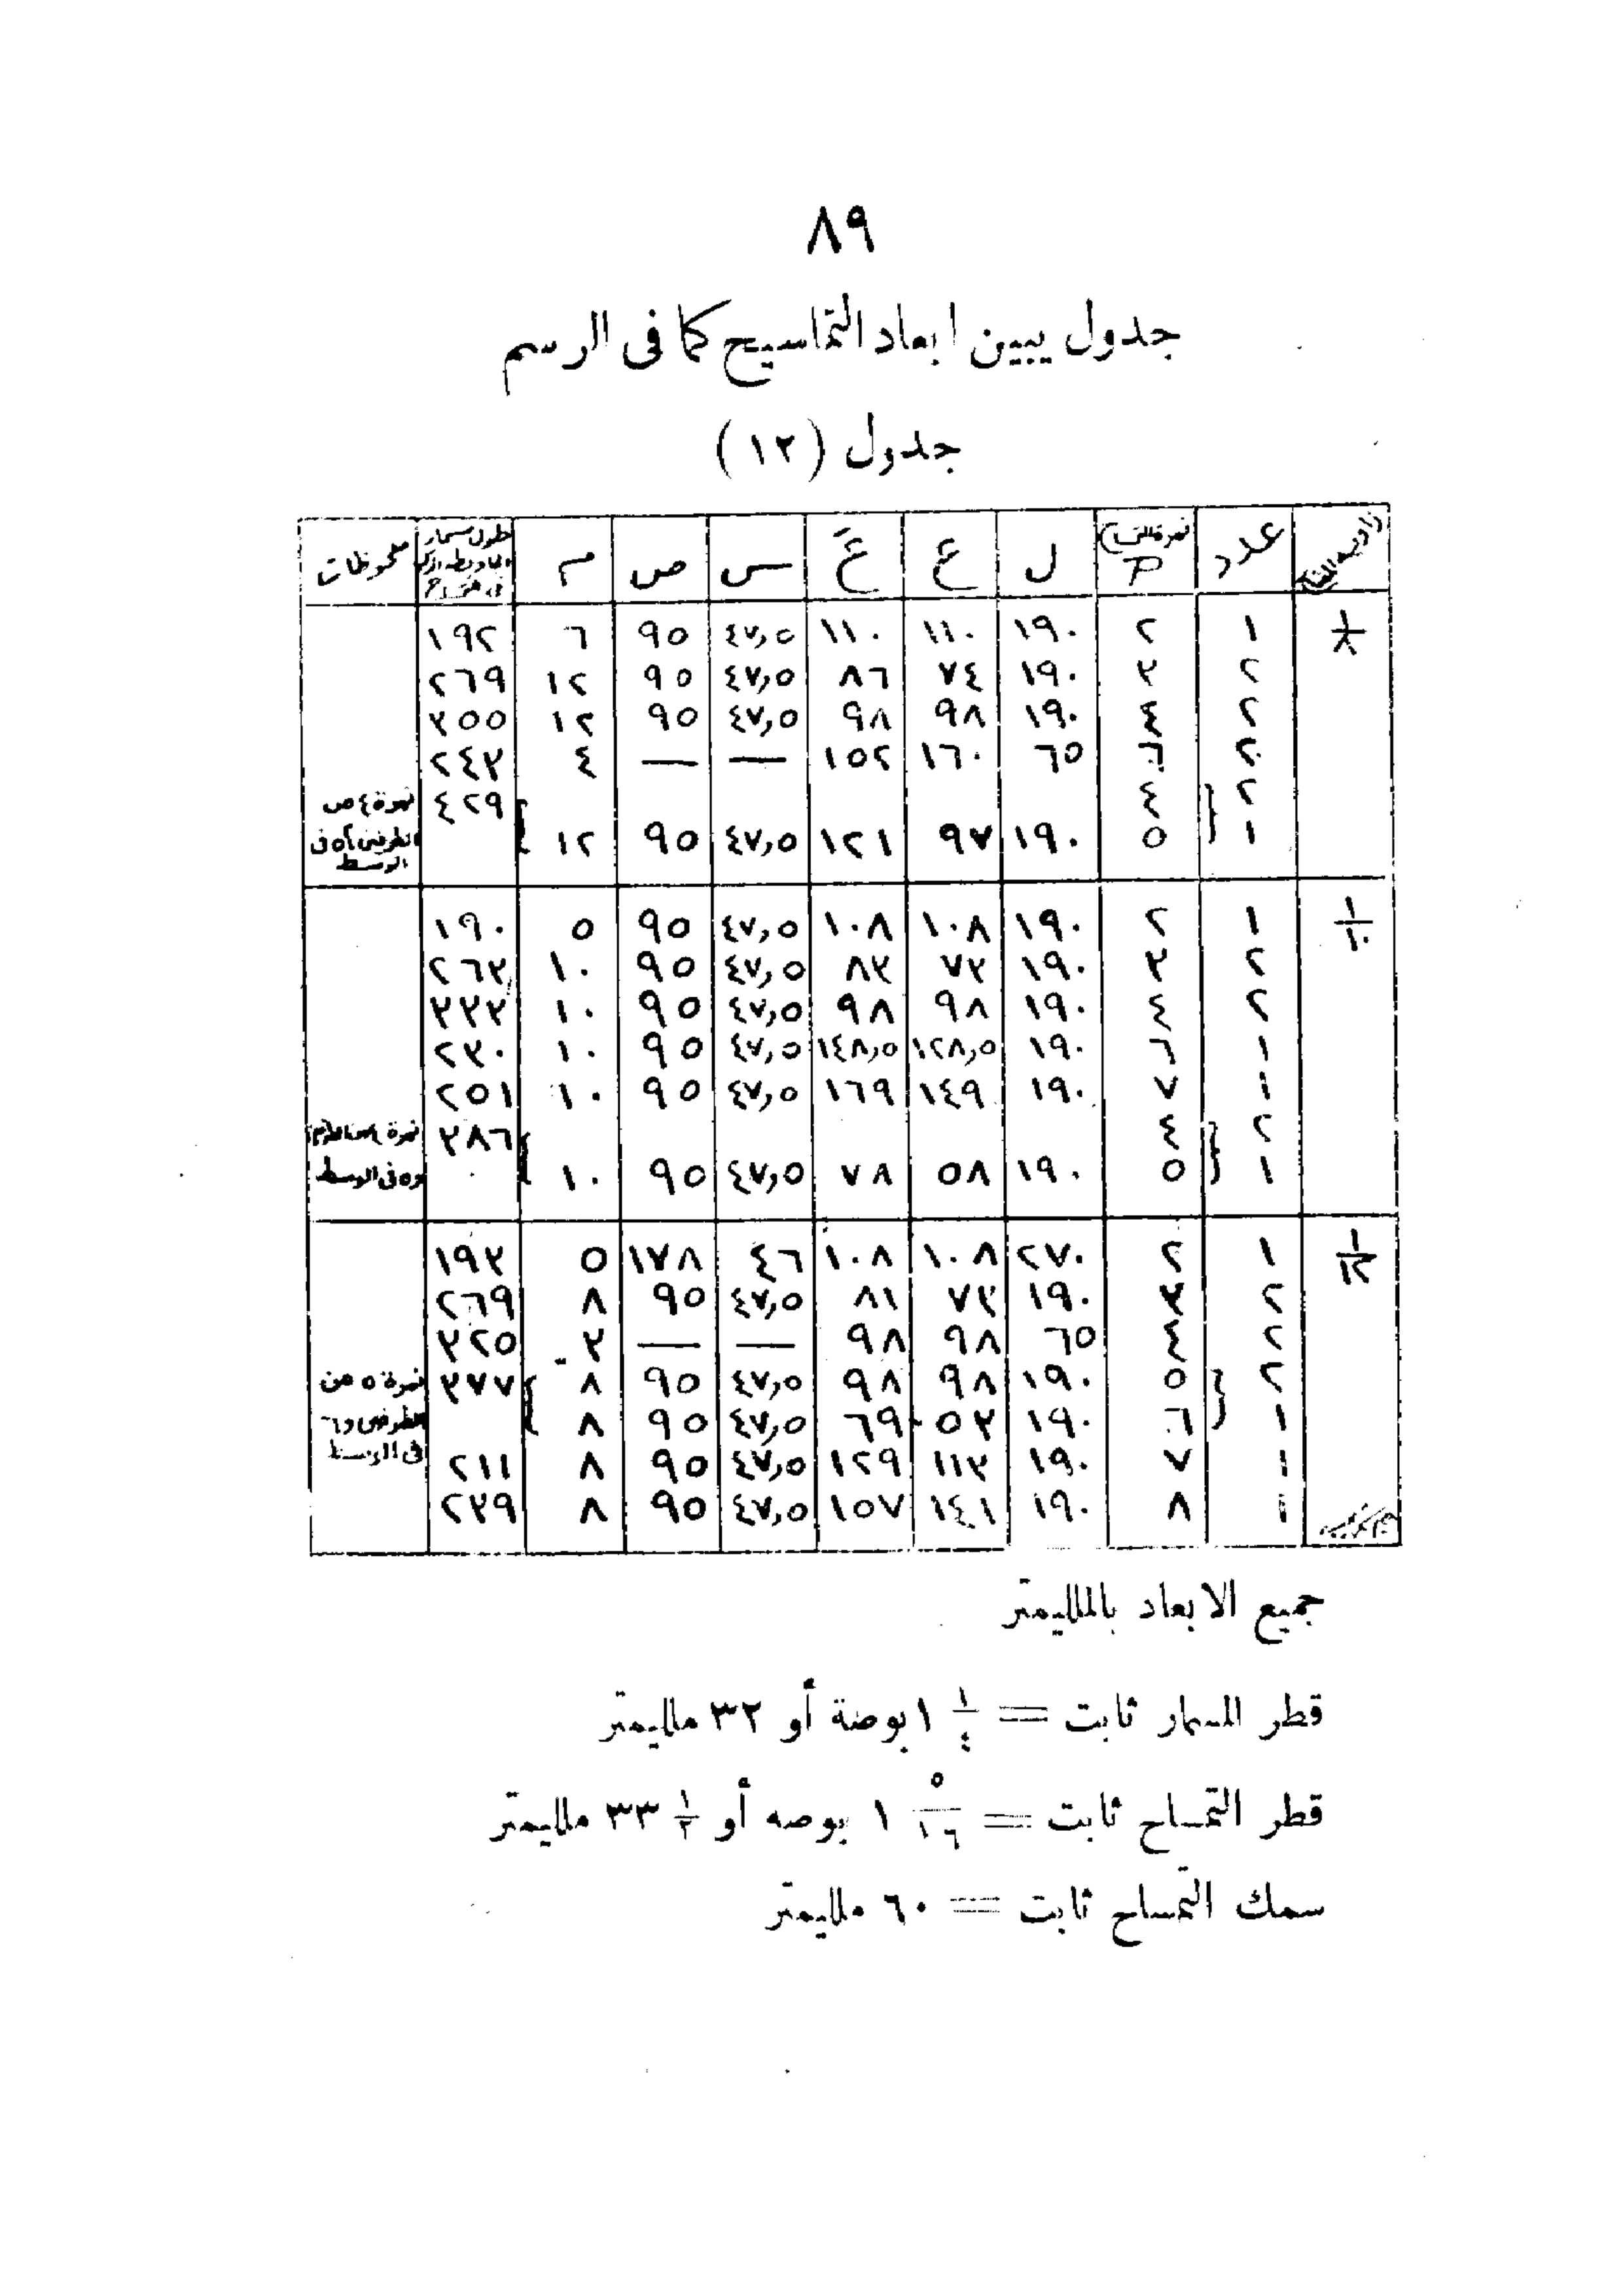 ٨٩
جدول يبين ابعاد التماسيح كما فى الرسم
جدول (١٢)
عدد نمرة التمساح P ل ع عَ س ص م طول مسمار ملحوظات
١/٨ ١ ٢ ١٩٠ ١١٠ ١١٠ ٤٧,٥ ٩٥ ٦ ١٩٢
٢ ٣ ١٩٠ ٧٤ ٨٦ ٤٧,٥ ٩٥ ١٢ ٢٦٩
٢ ٤ ١٩٠ ٩٨ ٩٨ ٤٧,٥ ٩٥ ١٢ ٣٥٥
٢ ٦ ٦٥ ١٦٠ ١٥٢ — — ٤ ٢٤٣
٢ ٤ ٤٢٩ نمرة ٤ من
١ ٥ ١٩٠ ٩٧ ١٢١ ٤٧,٥ ٩٥ ١٢ الطرفين و٥ فى
الوسط
١/١٠ ١ ٢ ١٩٠ ١٠٨ ١٠٨ ٤٧,٥ ٩٥ ٥ ١٩٠
٢ ٣ ١٩٠ ٧٣ ٨٣ ٤٧,٥ ٩٥ ١٠ ٢٦٣
٢ ٤ ١٩٠ ٩٨ ٩٨ ٤٧,٥ ٩٥ ١٠ ٣٣٣
١ ٦ ١٩٠ ١٢٨,٥ ١٤٨,٥ ٤٧,٥ ٩٥ ١٠ ٢٣٠
١ ٧ ١٩٠ ١٤٩ ١٦٩ ٤٧,٥ ٩٥ ١٠ ٢٥١
٢ ٤ ٣٨٦ نمرة
١ ٥ ١٩٠ ٥٨ ٧٨ ٤٧,٥ ٩٥ ١٠ و٥ فى الوسط
١/١٢ ١ ٢ ٢٧٠ ١٠٨ ١٠٨ ٤٦ ١٧٨ ٥ ١٩٣
٢ ٣ ١٩٠ ٧٣ ٨١ ٤٧,٥ ٩٥ ٨ ٢٦٩
٢ ٤ ٦٥ ٩٨ ٩٨ — — ٣ ٣٢٥
٢ ٥ ١٩٠ ٩٨ ٩٨ ٤٧,٥ ٩٥ ٨ ٣٧٧ نمرة ٥ من
١ ٦ ١٩٠ ٥٣ ٦٩ ٤٧,٥ ٩٥ ٨ الطرفين و٦
١ ٧ ١٩٠ ١١٣ ١٢٩ ٤٧,٥ ٩٥ ٨ ٢١١ فى الوسط
١ ٨ ١٩٠ ١٤١ ١٥٧ ٤٧,٥ ٩٥ ٨ ٢٣٩
جميع الابعاد بالملليمتر
قطر المسمار ثابت = ١ ١/٤ بوصة أو ٣٢ ملليمتر
قطر التمساح ثابت = ١ ٥/١٦ بوصه أو ٣٣ ١/٢ ملليمتر
سمك التمساح ثابت = ٦٠ ملليمتر